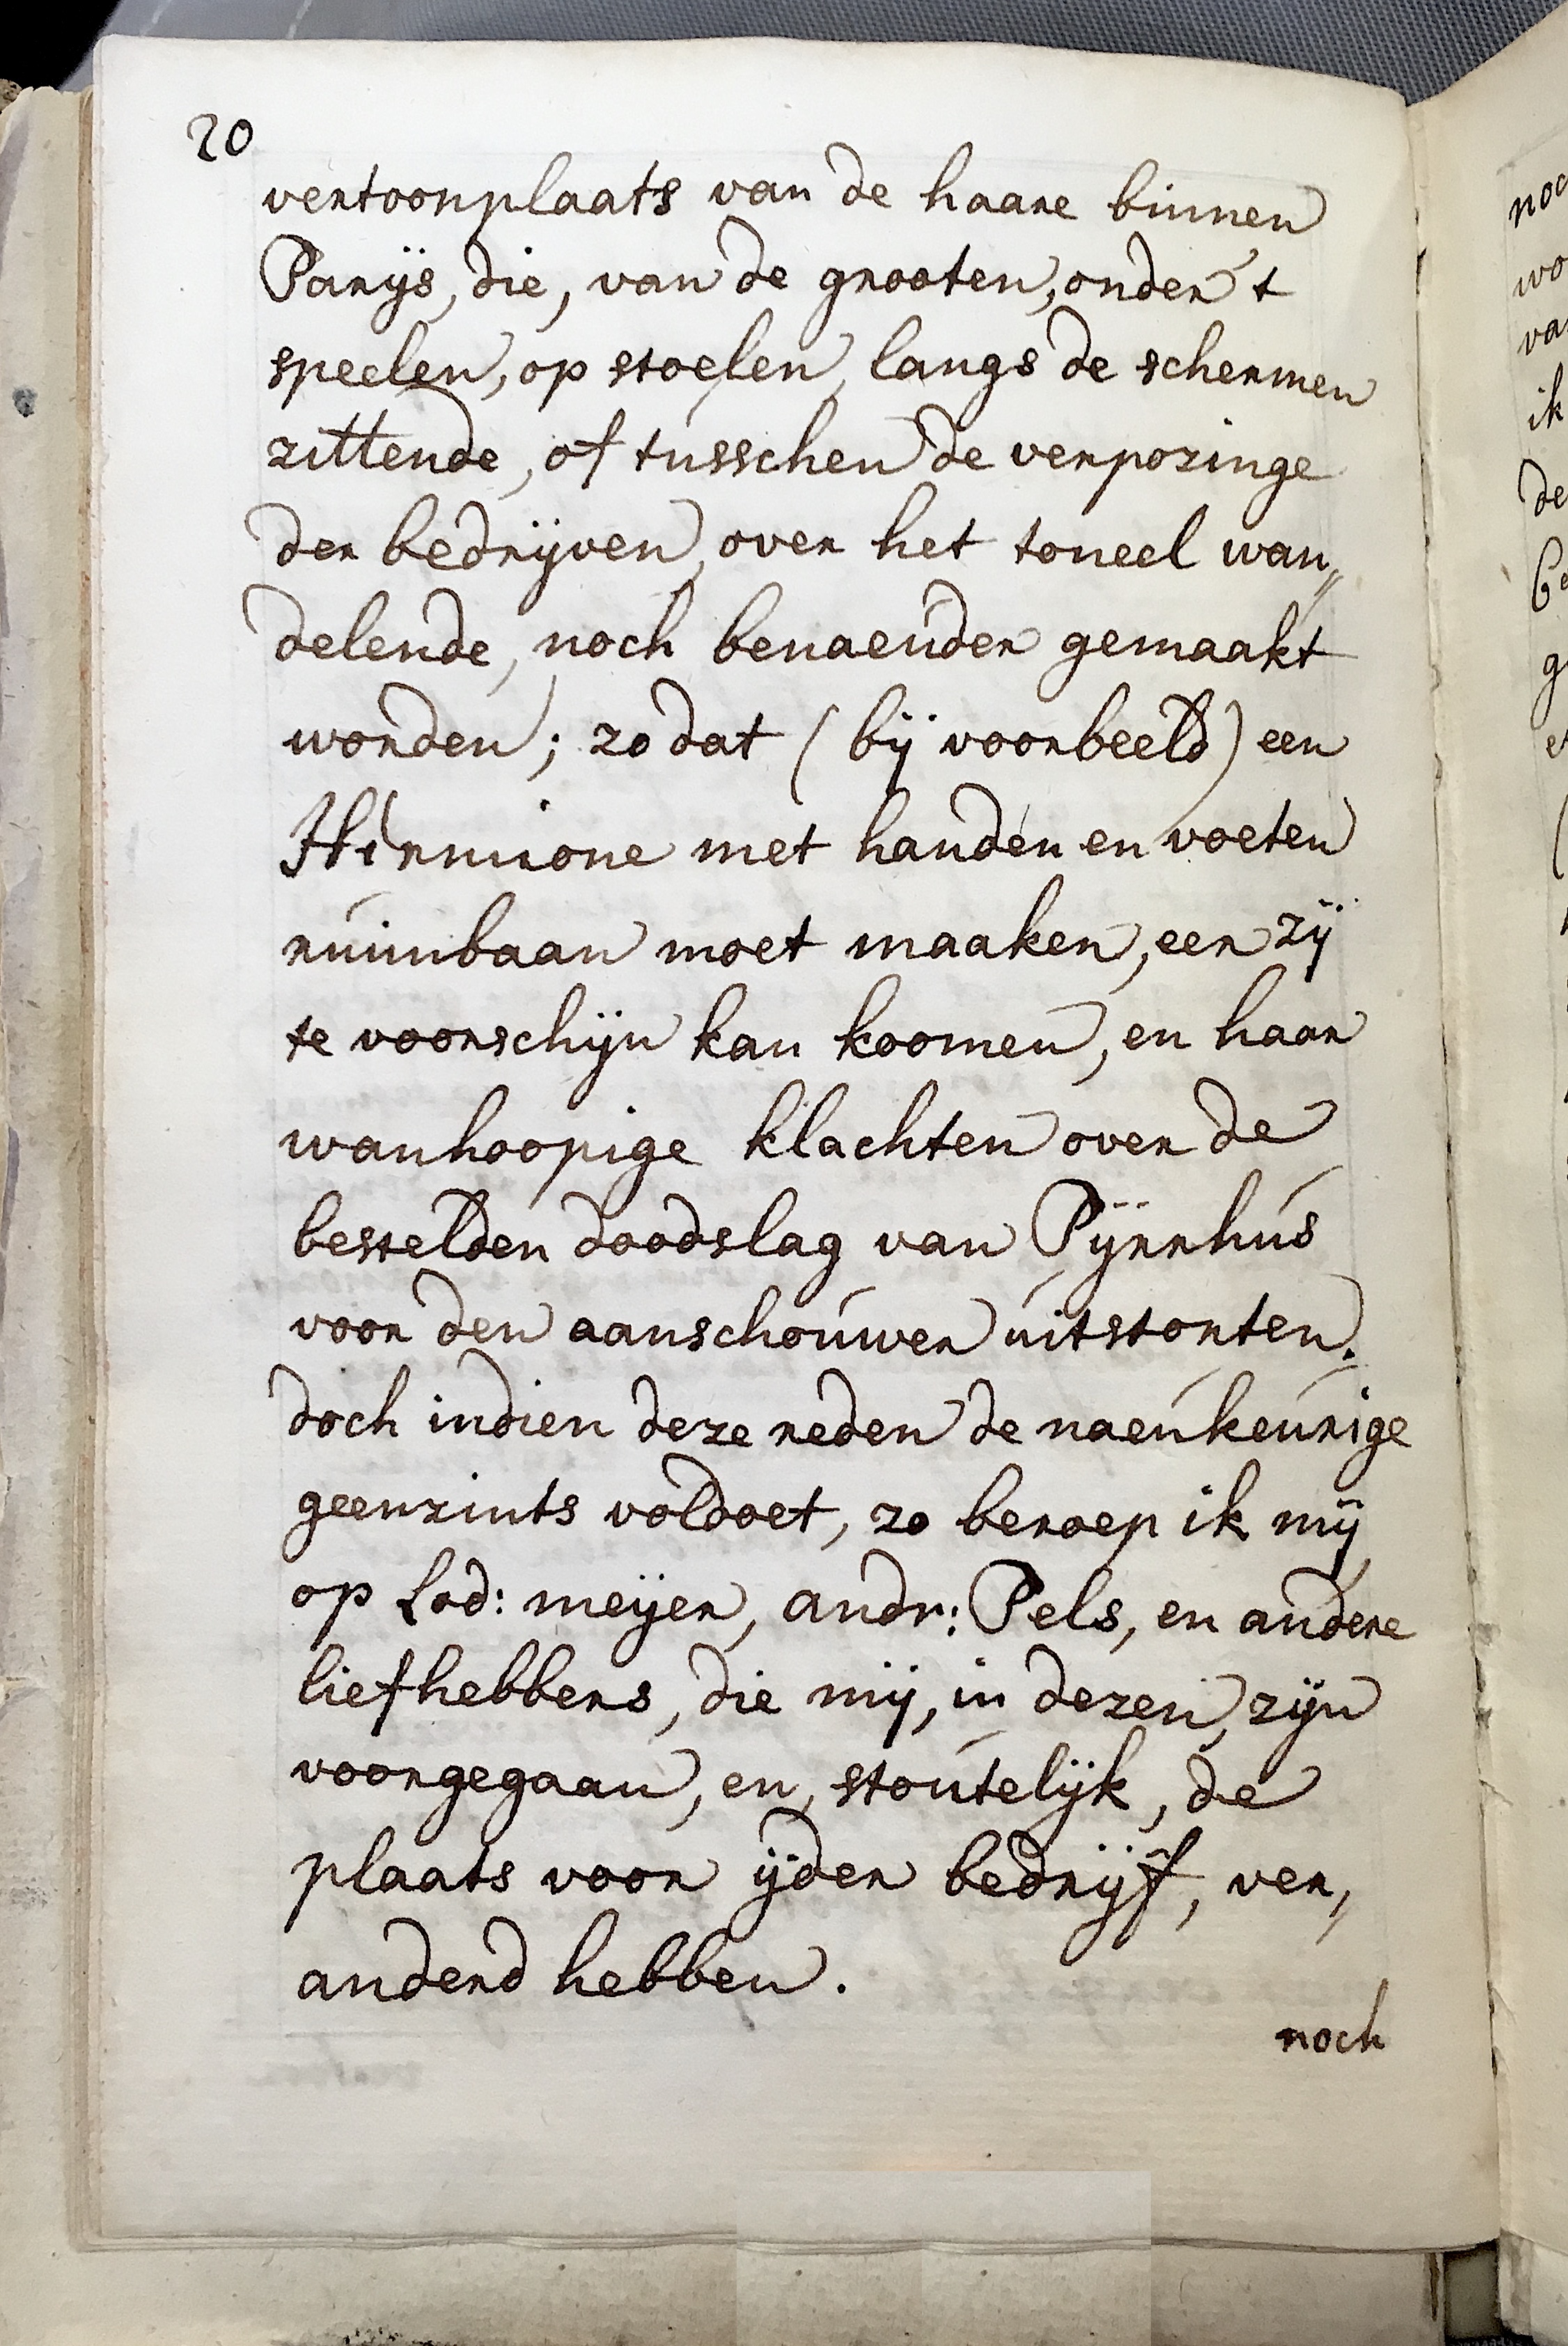 20
vertoonplaats van de haare binnen
Parijs, die, van de grooten, onder 't
speelen, op stoelen, langs de schermen
zittende, of tusschen de verpozinge
der bedrijven, over het toneel wan„
delende, noch benaeuder gemaakt
worden; zo dat (bij voorbeeld) een
Hermione met handen en voeten
ruimbaan moet maaken, eer zij
te voorschijn kan koomen, en haar
wanhoopige klachten over de
bestelden doodslag van Pijrrhus
voor den aanschouwer uitstorten.
doch indien deze reden de naeukeurige
geenzints voldoet, zo beroep ik mij
op Lod: meijer, andr: Pels, en andere
liefhebbers, die mij, in dezen, zijn
voorgegaan, en, stoutelijk, de
plaats voor ijder bedrijf, ver„
anderd hebben.
noch
noc
wo
va
ik
de
be
g